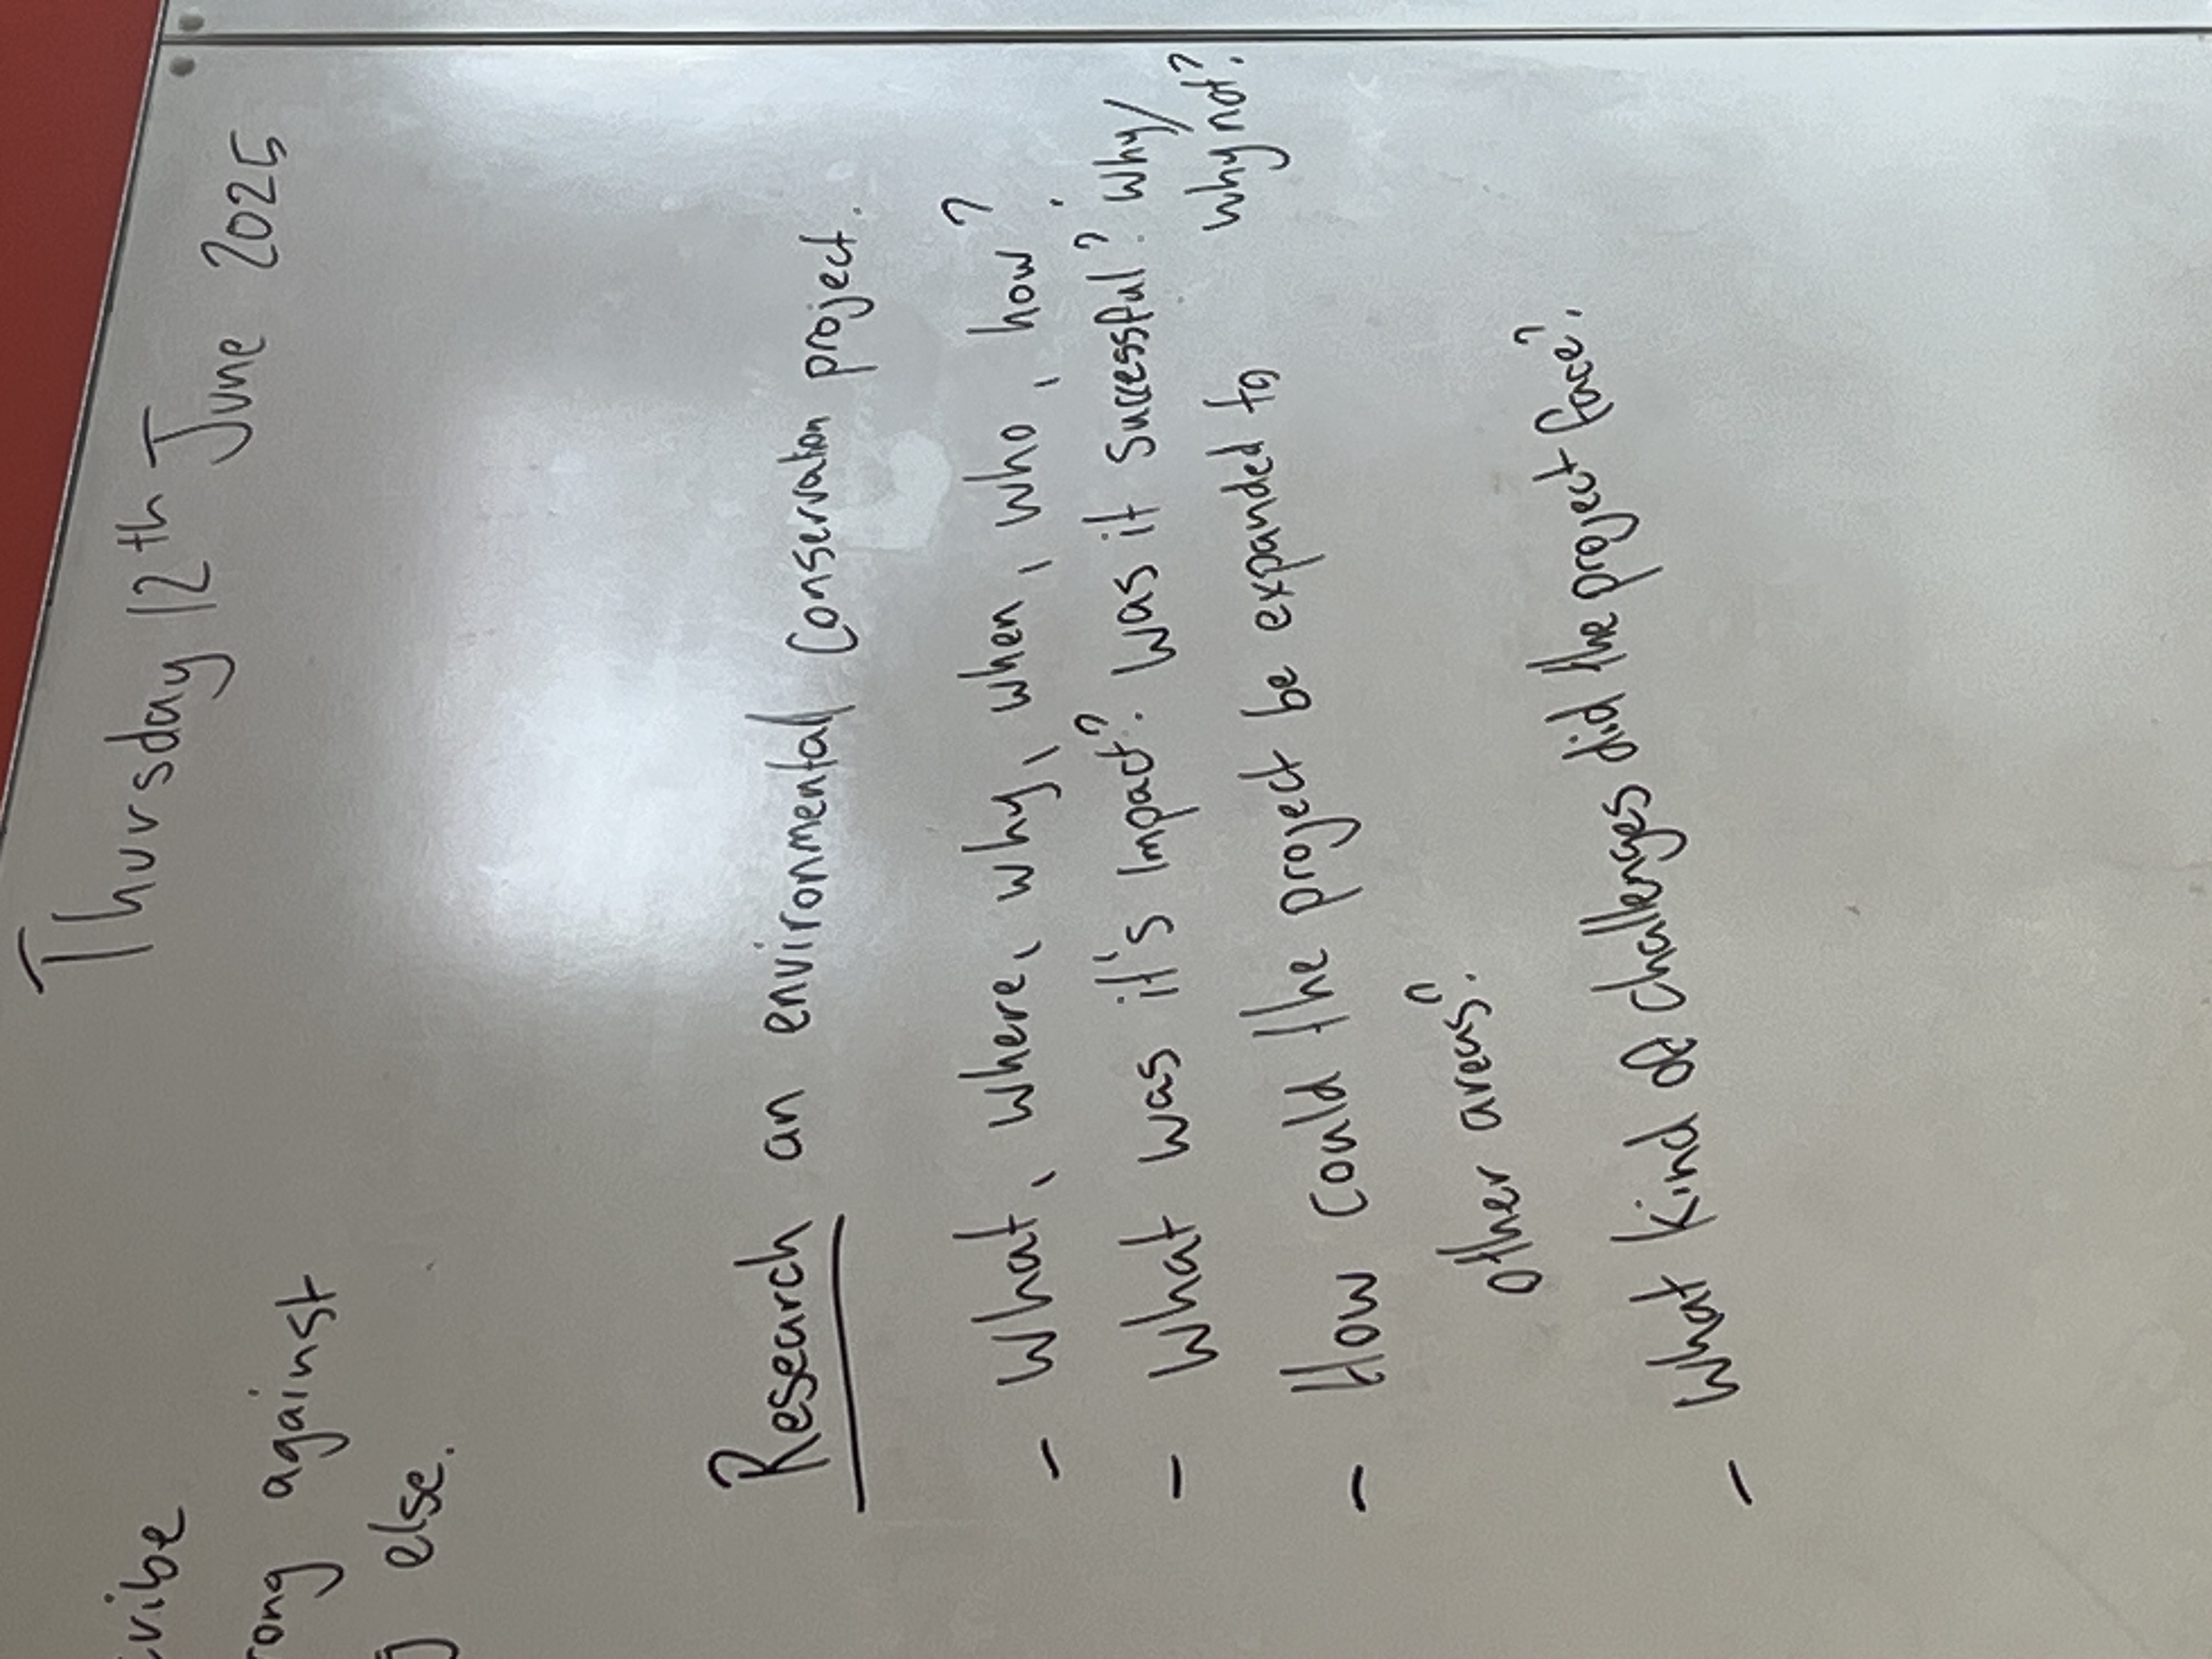 Thursday 12th June 2025
against
else.
Research an environmental conservation project.
- What, where, why, when, who, how?
- What was it's impact? Was it successful? Why/
why not?
- How could the project be expanded to
other areas?
- What kind of challenges did the project face?